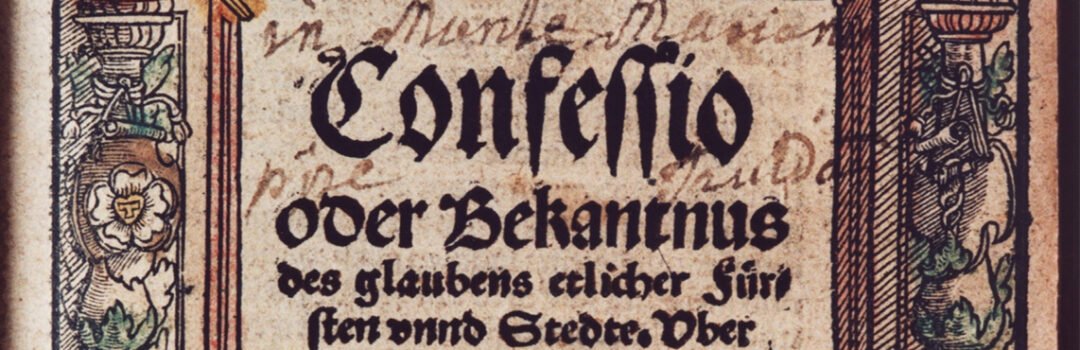 in Monte Marian
Confessio
Fulda
oder Bekantnus
des glaubens etlicher Für⸗
sten vnnd Stedte. Vber